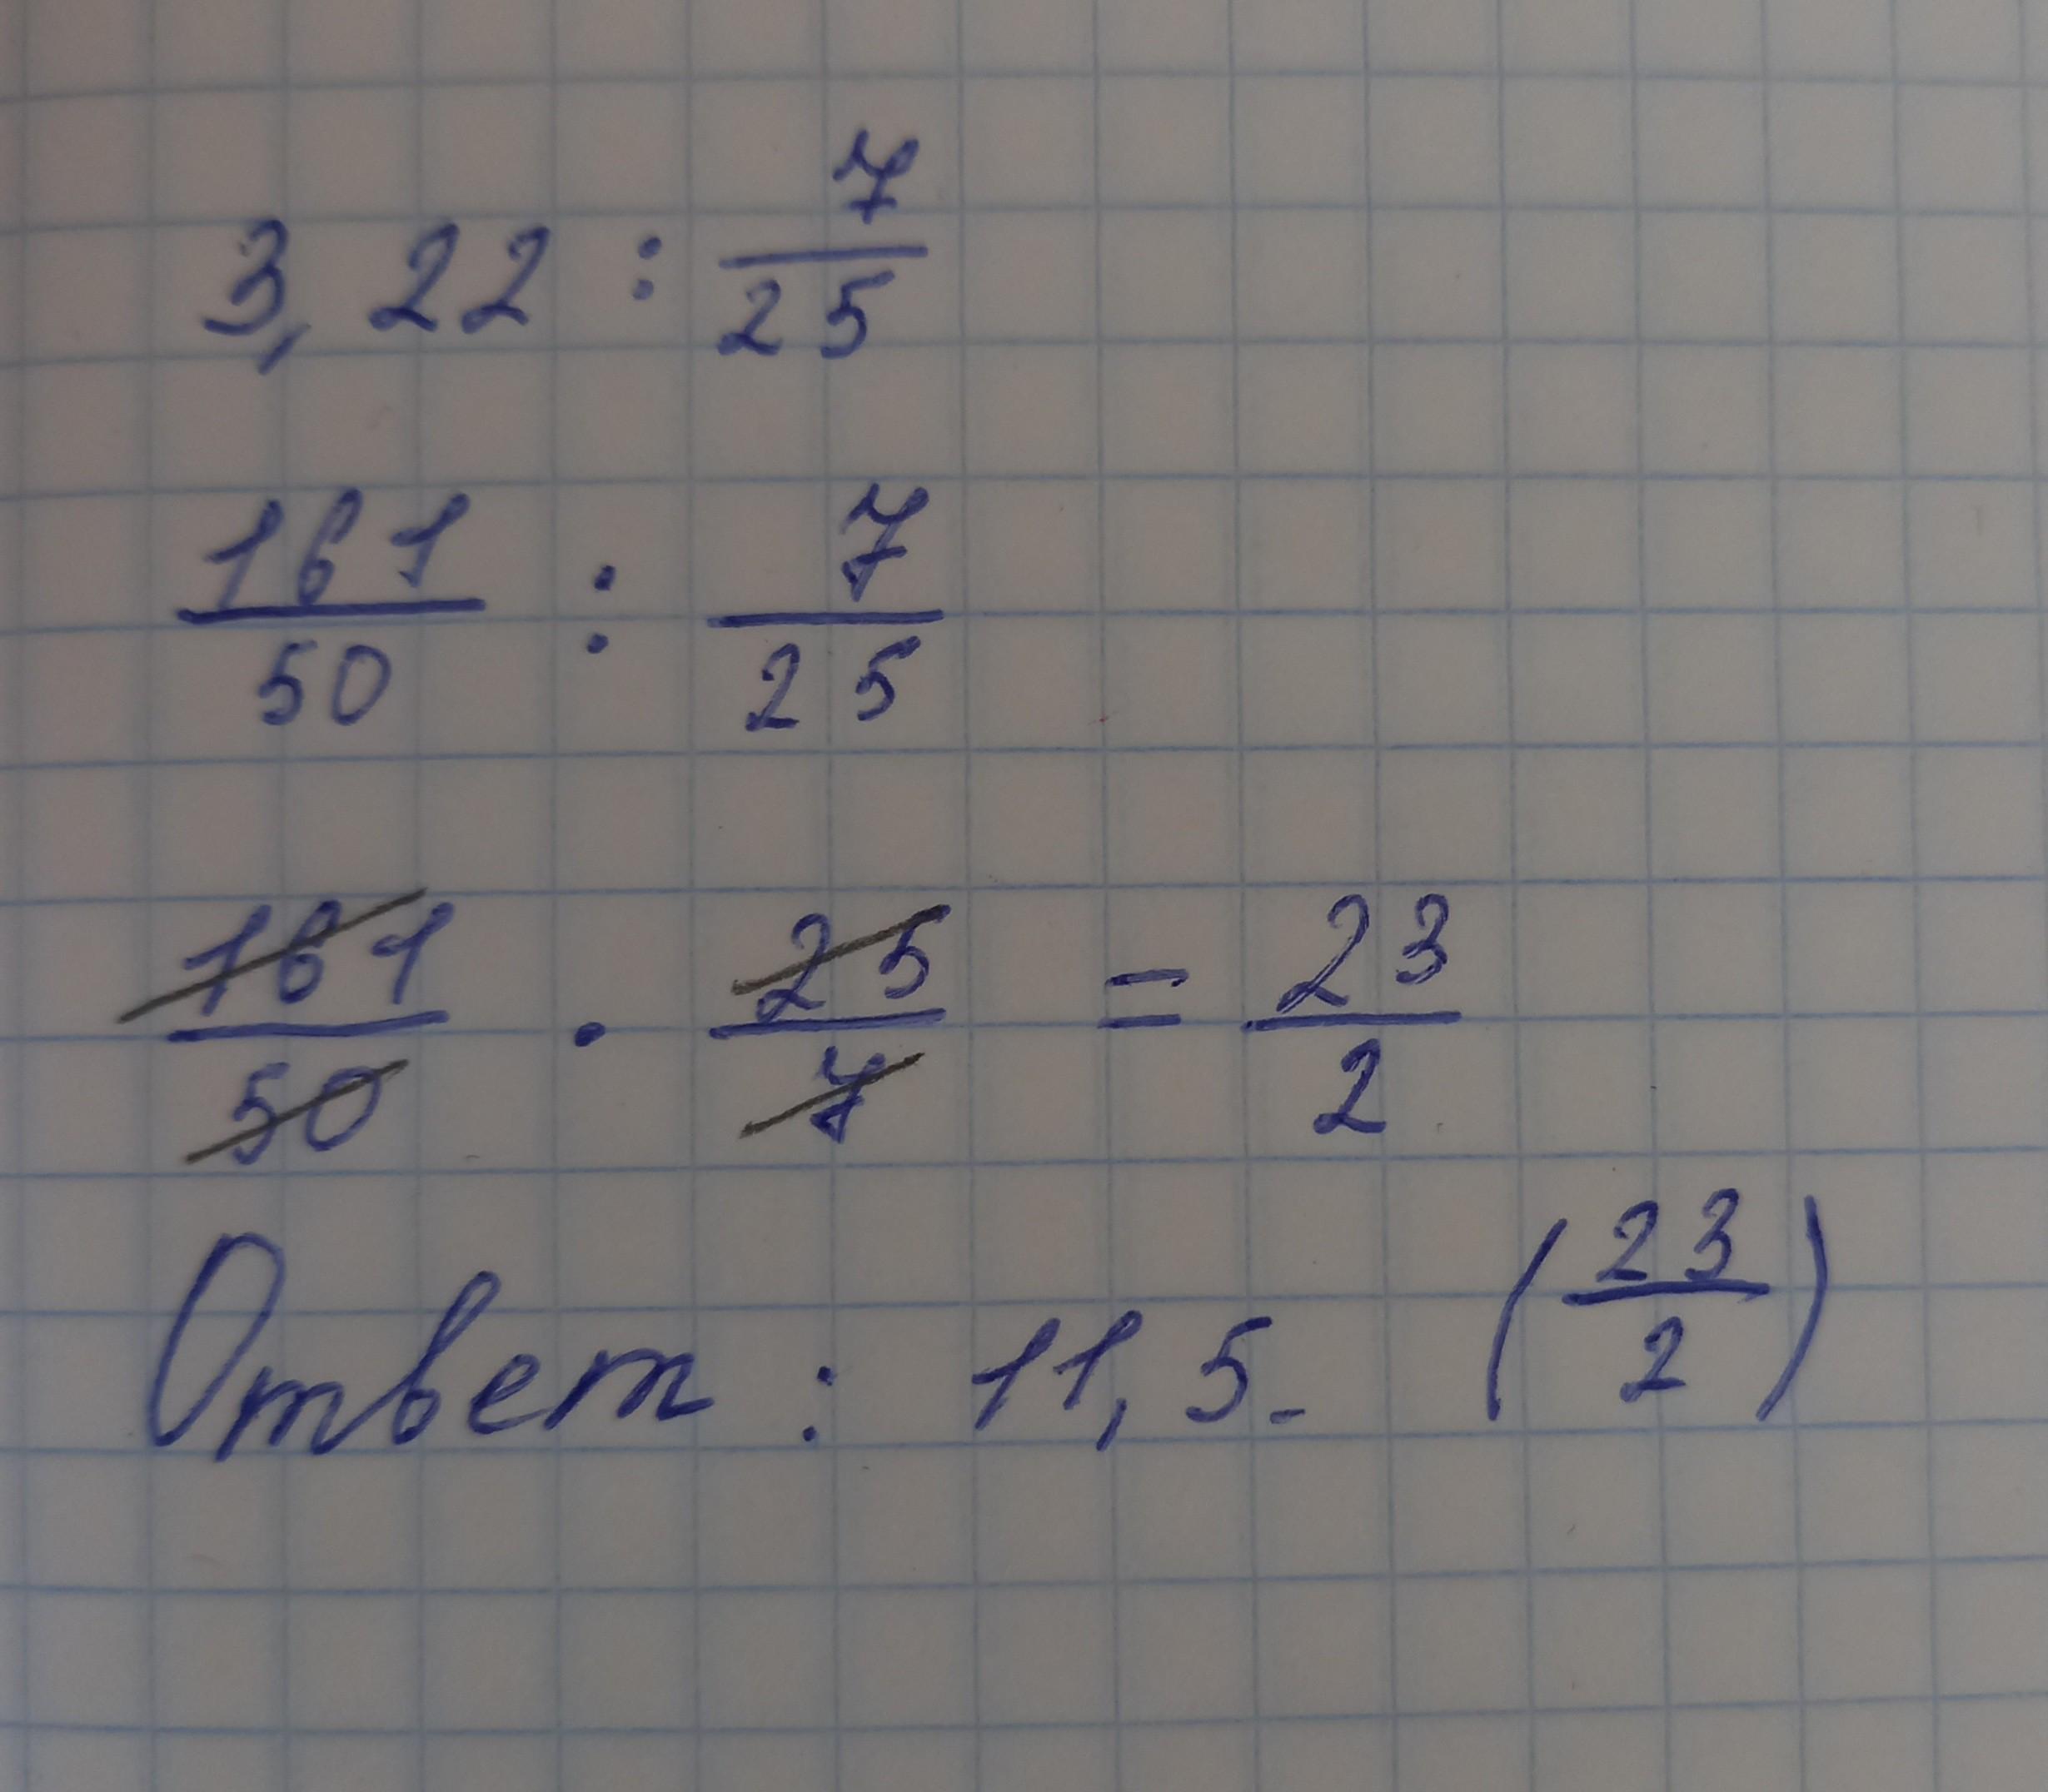 3,22 : 7/25
161/50 : 7/25
161/50 · 25/7 = 23/2
Ответ : 11,5. (23/2)